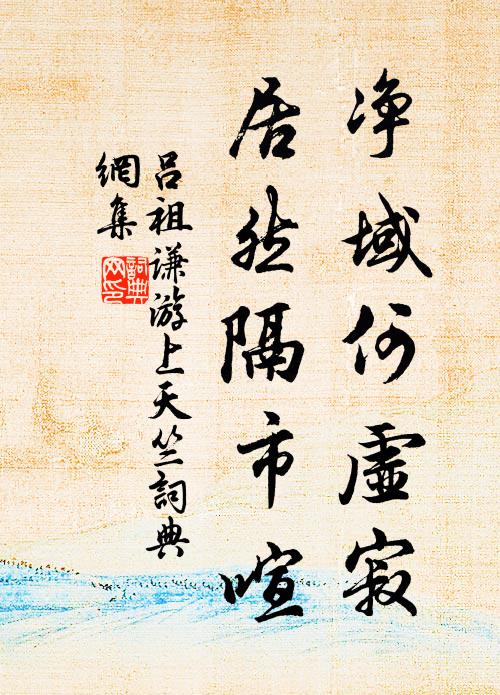 净域何虚寂
居然隔市喧
吕祖谦游上天竺詞典
網集
詞典
网印